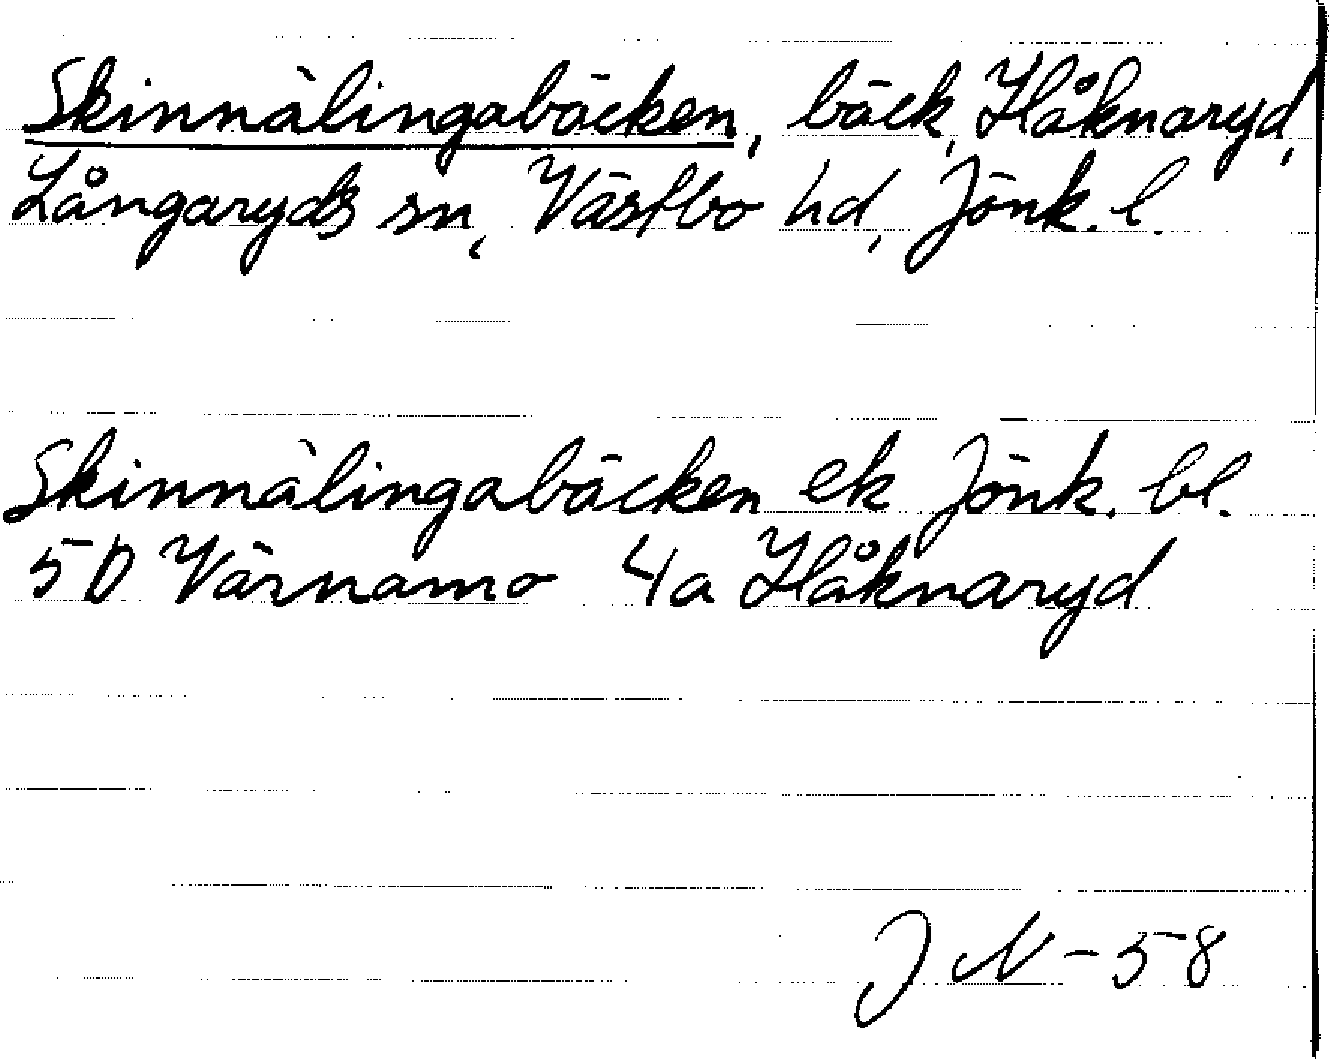 Skinnàlingabäcken, bäck, Håknaryd,
Långaryds sn, Västbo hd, Jönk. l.
Skinnàlingabäcken ek Jönk. bl.
5D Värnamo 4a Håknaryd
J N - 58